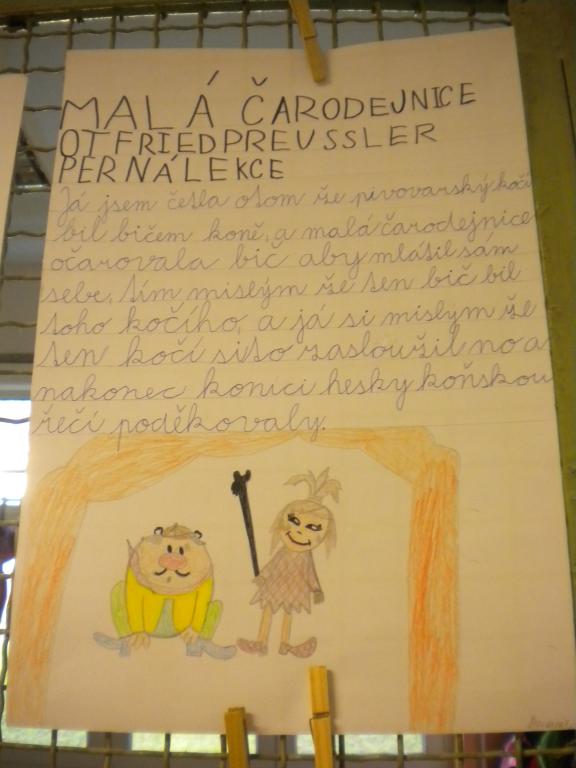 MALÁ ČARODEJNICE
OTFRIED PREUSSLER
PERNÁ LEKCE
Já jsem četla otom že pivovarský kočí
bil bičem koně, a malá čarodejnice
očarovala bič aby mlátil sám
sebe, tím mislým že ten bič bil
toho kočího, a já si mislym že
ten kočí sito zasloužil no a
nakonec konici hesky koňskou
řečí poděkovaly.